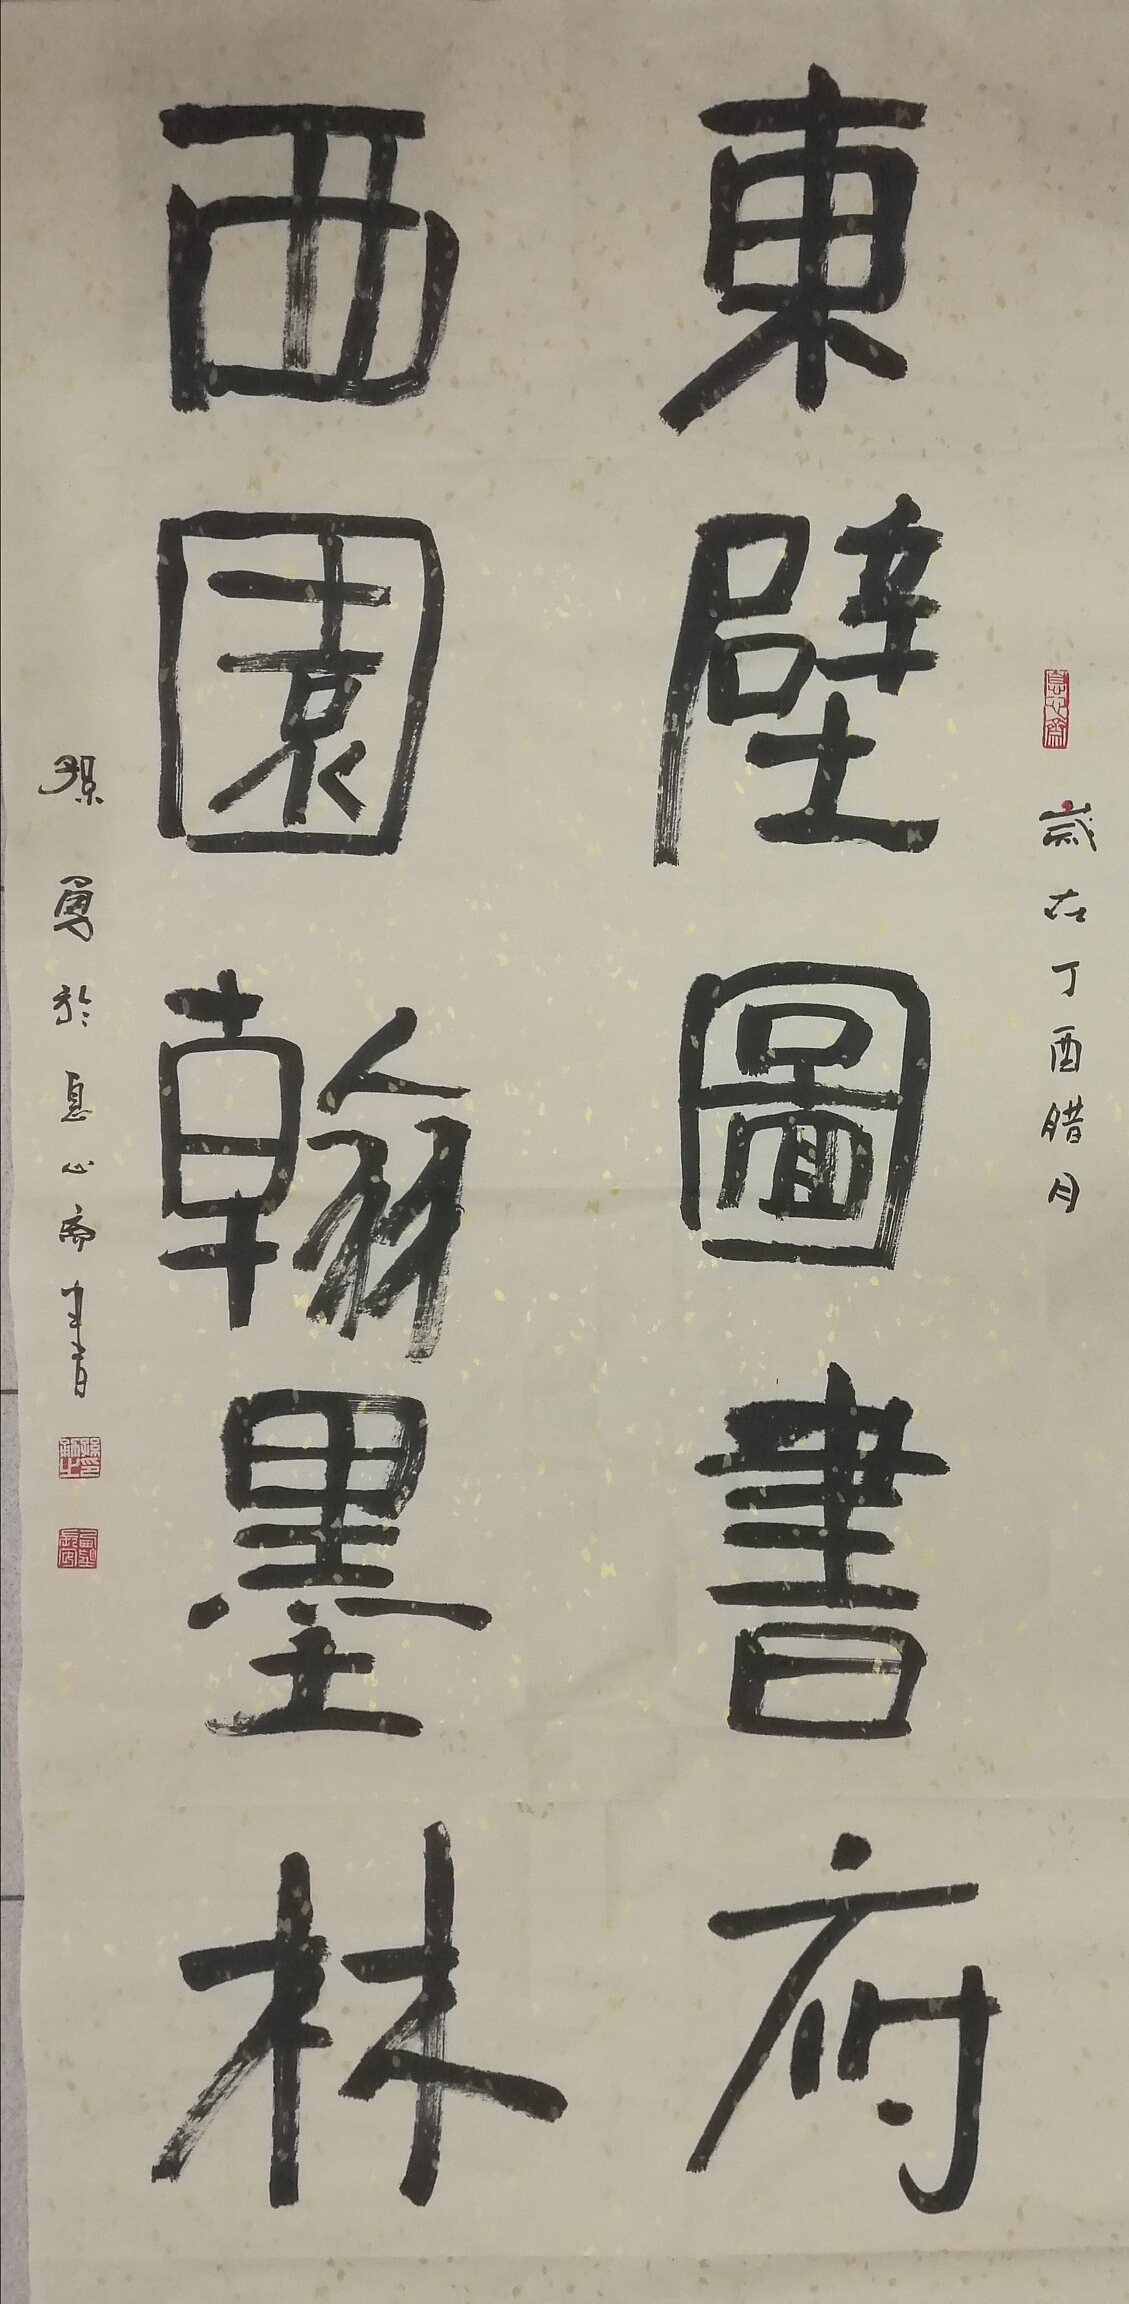 東壁圖書府
西園翰墨林
歲在丁酉腊月
孫勇於息心斋書
息心齋